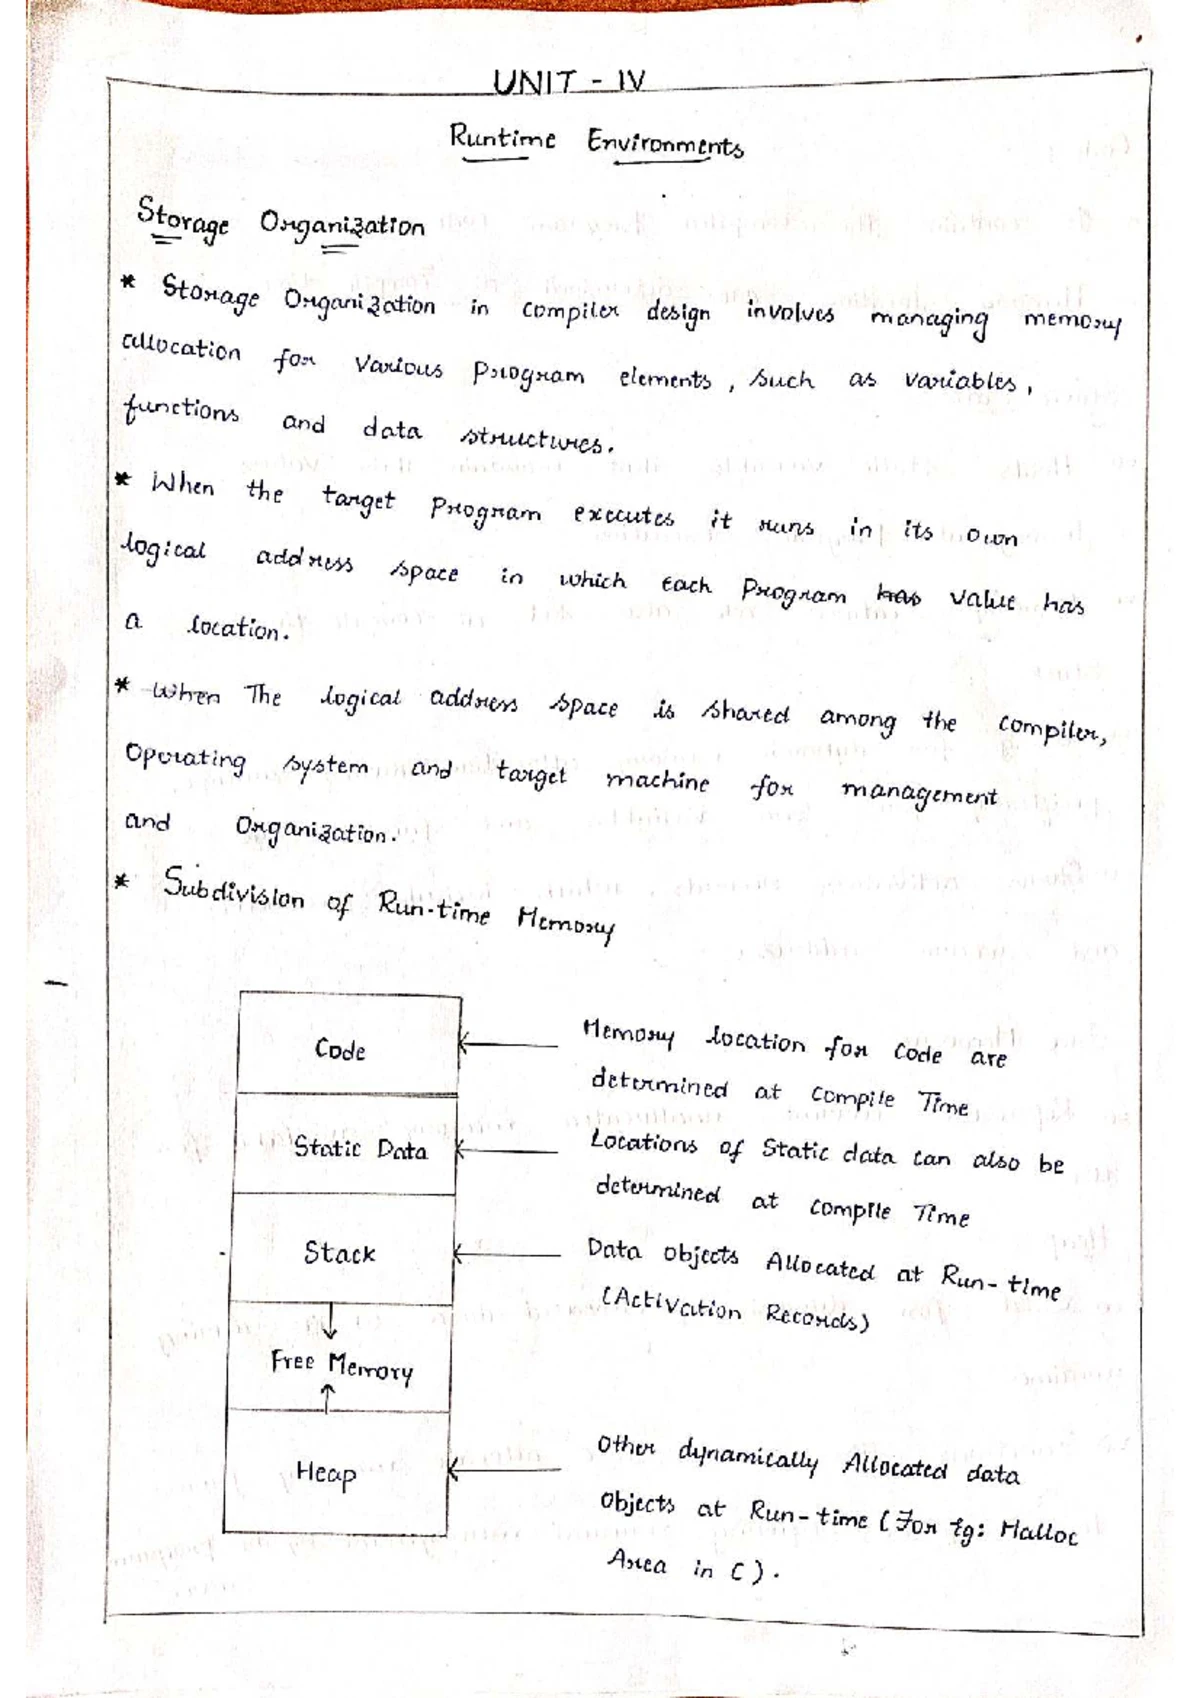 UNIT - IV
Runtime Environments
Storage Organization
* Storage Organization in compiler design involves managing memory
allocation for various program elements, such as variables,
functions and data structures.
* When the target Program executes it runs in its own
logical address space in which each Program has value has
a location.
* When The logical address space is shared among the compiler,
Operating system and target machine for management
and Organization.
* Subdivision of Run-time Memory
Code
Memory location for code are
determined at compile Time
Static Data
Locations of Static data can also be
determined at compile Time
Stack
Data objects Allocated at Run-time
(Activation Records)
Free Memory
Heap
Other dynamically Allocated data
objects at Run-time (For Eg: Malloc
Area in C).